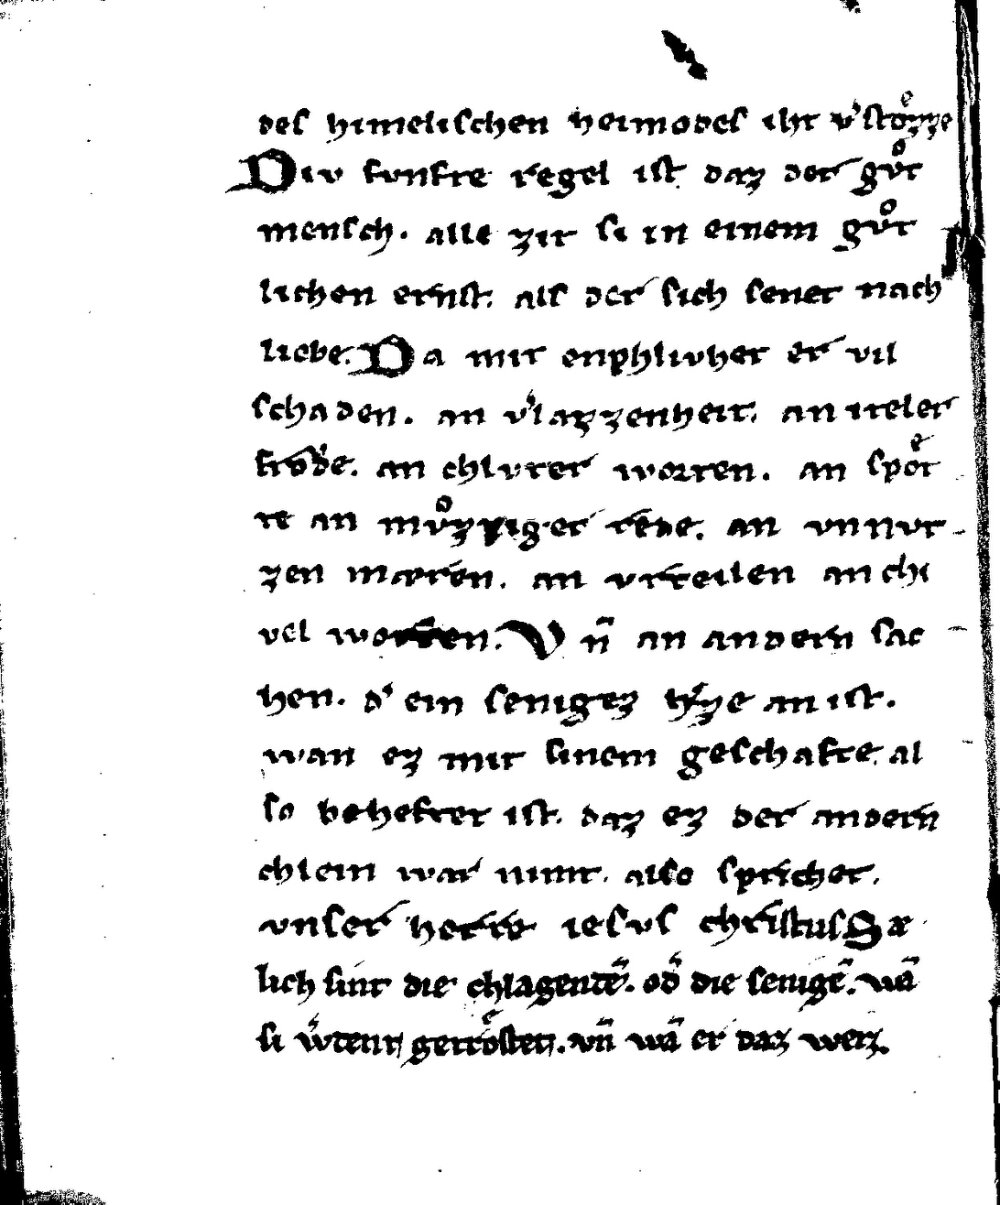 des himelischen heimodes iht v̾stoͤzze
Div funfte regel ist daz der guͦt
mensch. alle zit si in einem guͦt
lichen ernst. als der sich sener nach
liebe. Da mit enphlivhet er vil
schaden. an v̾lazzenheit. an iteler
froͮde. an chlvter worten. an spoͤt
te an muͦzziger rede. an vnnvt
zen mæren. an vrteilen an chi
vel worten. Vn̄ an andern sac
hen. d̾ ein seniges h̾ze an ist.
wan ez mit sinem geschafte. al
so beheftet ist. daz ez der andern
chlein war nimt. also sprichet.
vnser herre iesus christus Sæ
lich sint die chlagentē. od̾ die senigē. wā
si w̾tent getroͤstet. vn̄ wā er daz werz.